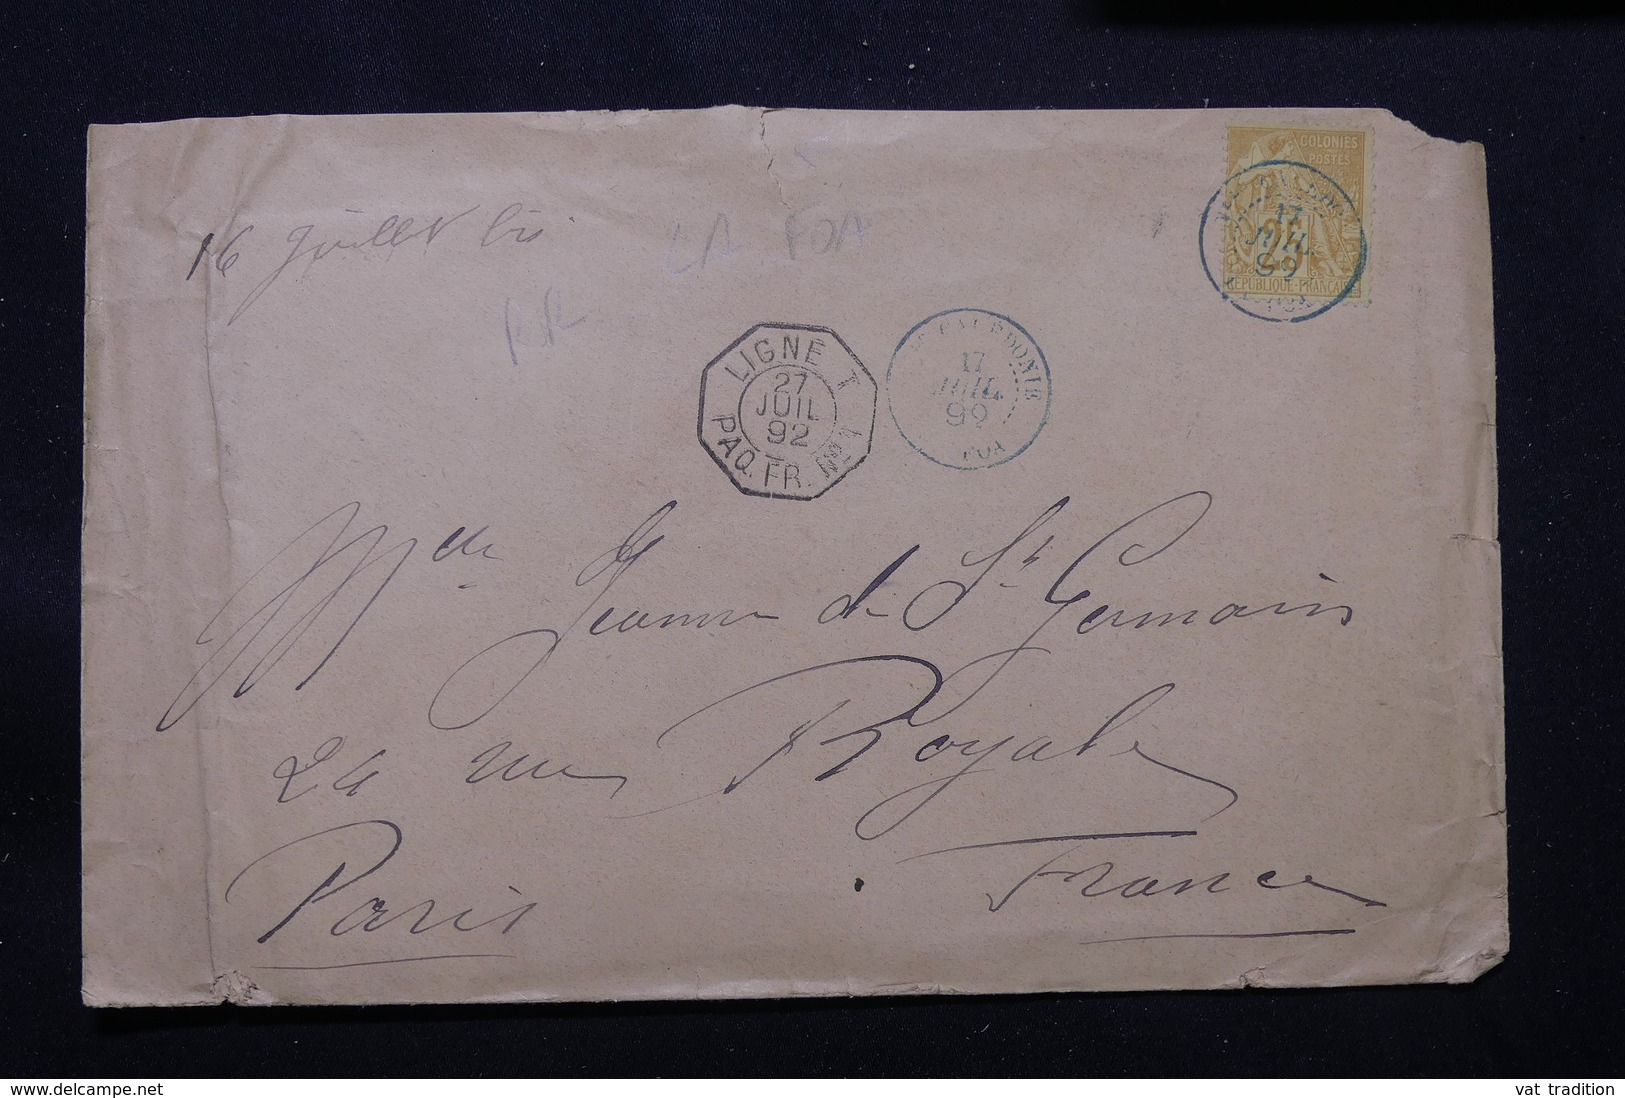 16 Juillet bis
LA FOA
COLONIES
POSTES
17
JUIL.
92
25
REPUBLIQUE-FRANCAISE
LIGNE T
27
JUIL
92
PAQ. FR. Nº 1
CALEDONIE
17
JUIL.
92
FOA
Mdlle Jeanne de St Germain
24 rue Royale
Paris
France
www.delcampe.net
vat tradition